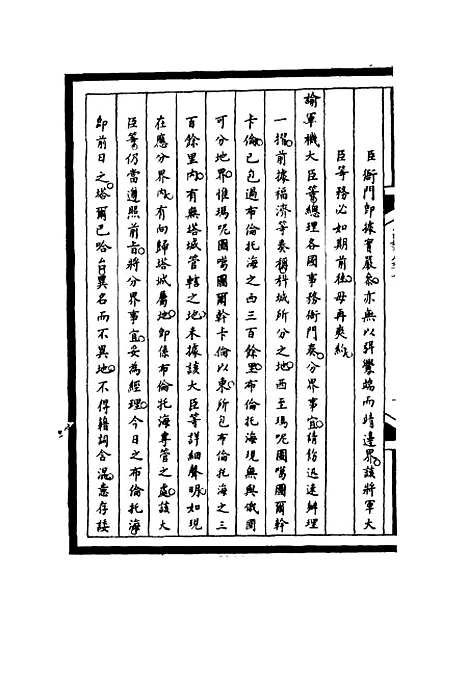 臣衙門即據實嚴參亦無以弭釁端而靖邊界該將軍大
臣等務必如期前往毋再爽約
諭軍機大臣等總理各國事務衙門奏分界事宜請飭迅速辦理
一摺前據福濟等奏稱科城所分之地西至瑪呢圖噶圖爾幹
卡倫已包過布倫托海之西三百餘里布倫托海現無與俄國
可分地界惟瑪呢圖噶圖爾幹卡倫以東所包布倫托海之三
百餘里內有無塔城管轄之地未據該大臣等詳細聲明如現
在應分界內有向歸塔城屬地即係布倫托海專管之處該大
臣等仍當遵照前旨將分界事宜妥為經理今日之布倫托海
即前日之塔爾巴哈台異名而不異地不得藉詞含混意存諉